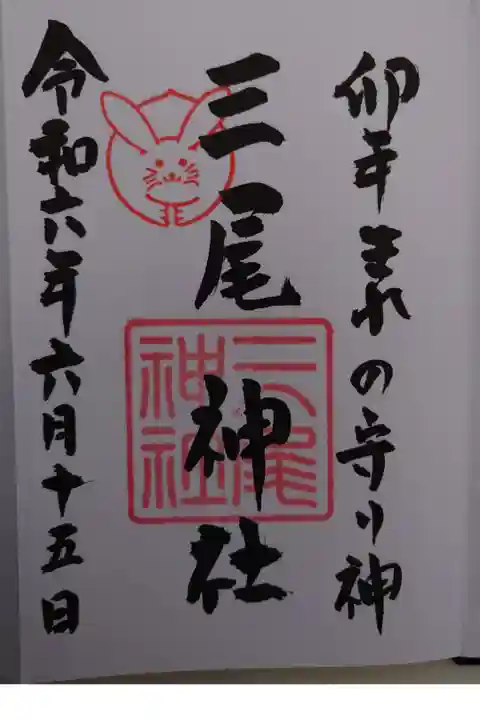 卯年生れの守り神
三尾神社
三尾神社
令和六年六月十五日